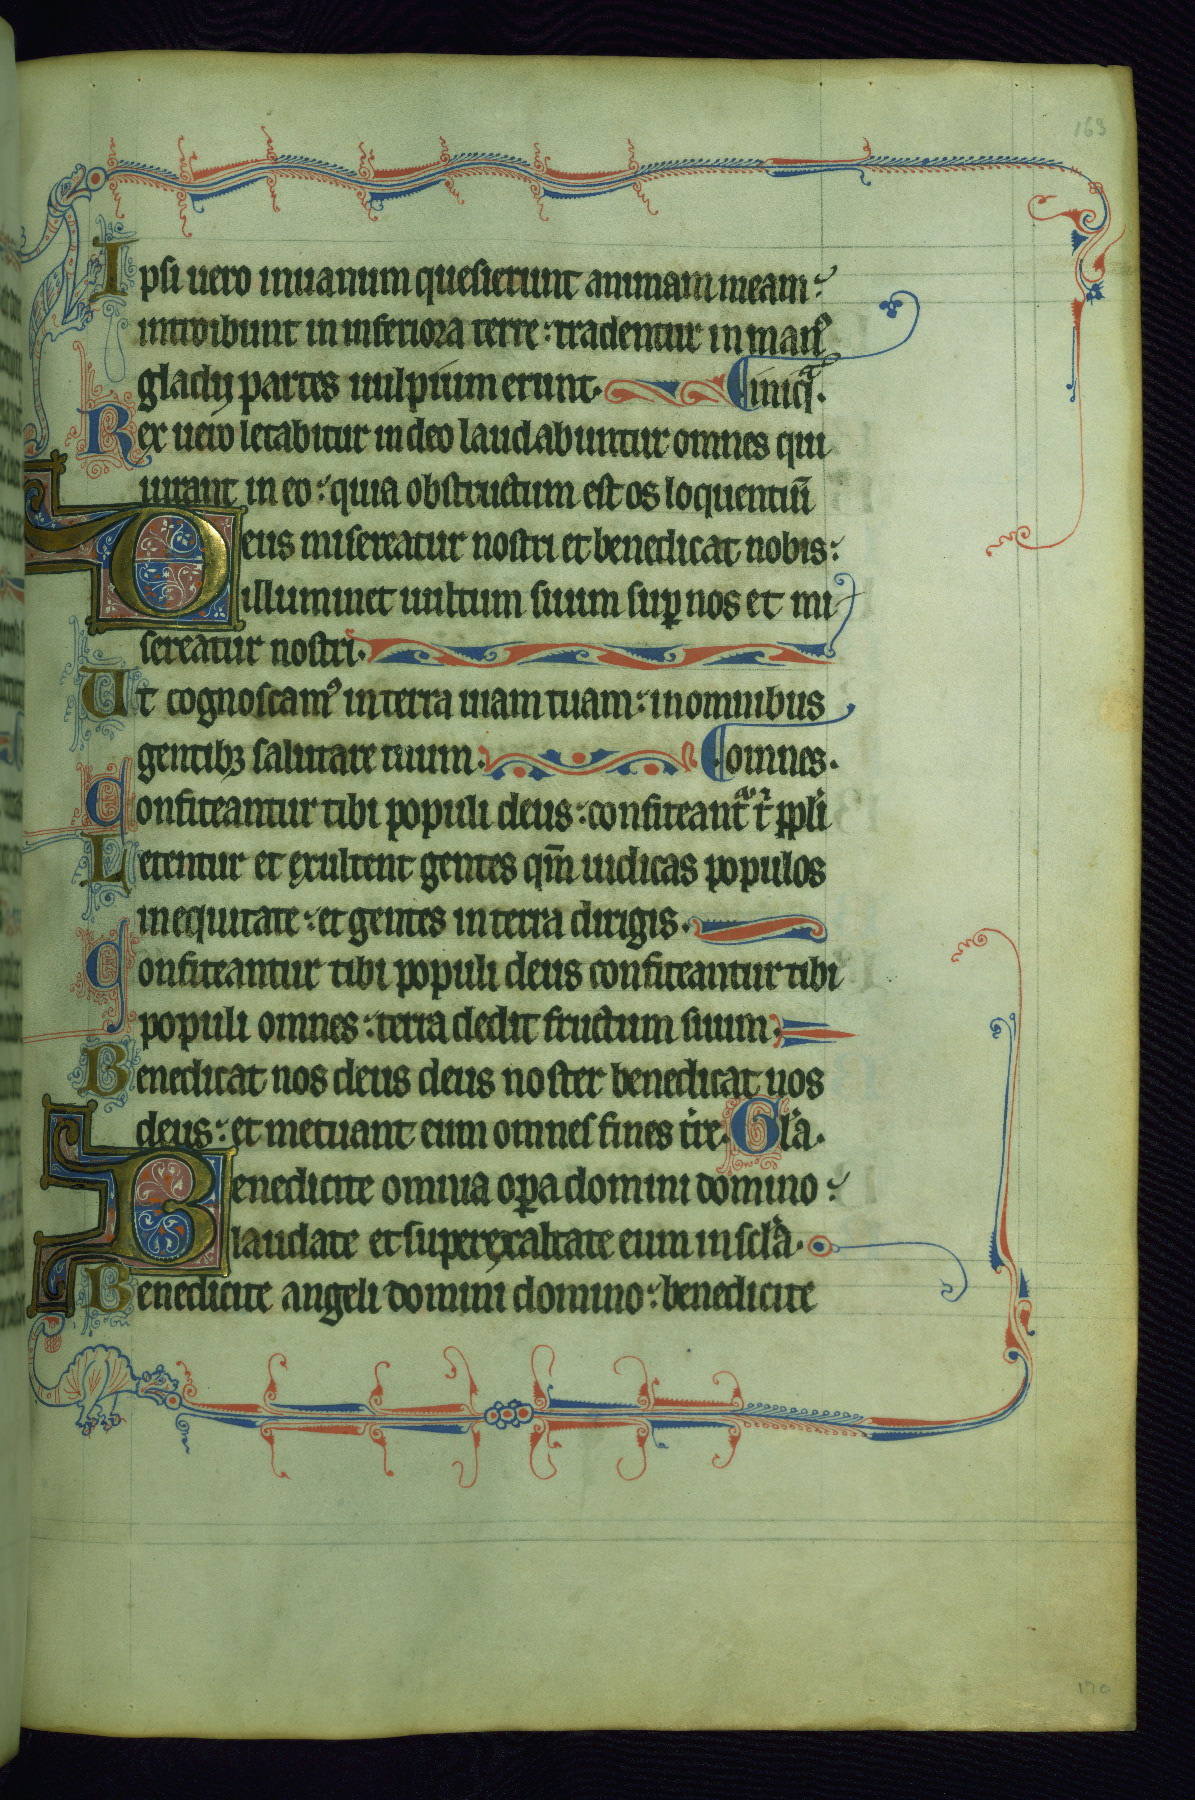 163
Ipsi uero inuanum quesierunt animam meam:
introibunt in inferiora terre: tradentur in man᾽
gladii partes uulpium erunt. iniq̄.
Rex uero letabitur in deo laudabuntur omnes qui
iurant in eo: quia obstructum est os loquentiū
Deus misereatur nostri et benedicat nobis:
illuminet uultum suum sup nos et mi
sereatur nostri.
Ut cognoscam᾽ in terra uiam tuam: in omnibus
gentibꝫ salutare tuum. omnes.
Confiteantur tibi populi deus: confiteant᷑ t̾ ppl̾i
Letentur et exultent gentes qm̄ iudicas populos
in equitate: et gentes in terra dirigis.
Confiteantur tibi populi deus confiteantur tibi
populi omnes: terra dedit fructum suum;
Benedicat nos deus deus noster benedicat uos
deus: et metuant eum omnes fines t̾re. Gl̾a.
Benedicite omnia oꝑa domini domino:
laudate et superexaltate eum in scl̾a.
Benedicite angeli domini domino: benedicite
170